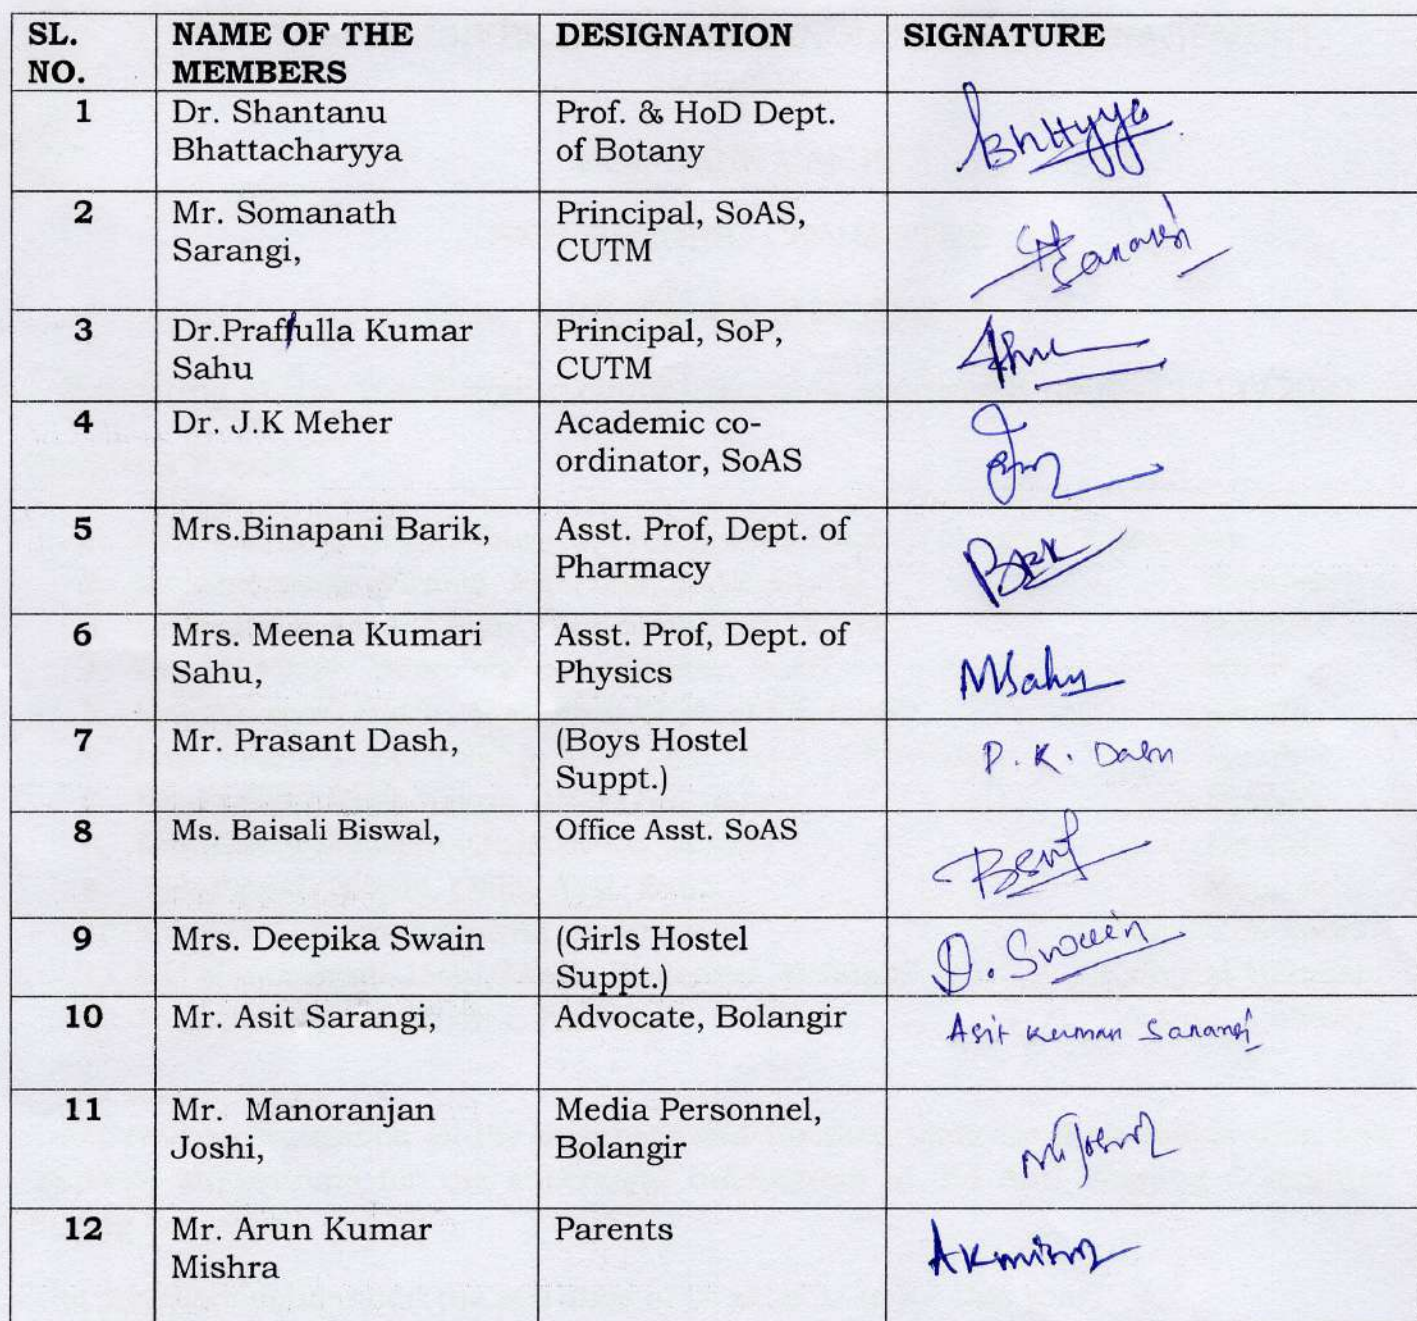 SL. NO. NAME OF THE MEMBERS DESIGNATION SIGNATURE
1 Dr. Shantanu Bhattacharyya Prof. & HoD Dept. of Botany
2 Mr. Somanath Sarangi, Principal, SoAS, CUTM Sarangi
3 Dr.Praffulla Kumar Sahu Principal, SoP, CUTM
4 Dr. J.K Meher Academic co-ordinator, SoAS
5 Mrs.Binapani Barik, Asst. Prof, Dept. of Pharmacy
6 Mrs. Meena Kumari Sahu, Asst. Prof, Dept. of Physics MSahu
7 Mr. Prasant Dash, (Boys Hostel Suppt.) P. K. Dash
8 Ms. Baisali Biswal, Office Asst. SoAS
9 Mrs. Deepika Swain (Girls Hostel Suppt.) D. Swain
10 Mr. Asit Sarangi, Advocate, Bolangir Asit Kumar Sarangi
11 Mr. Manoranjan Joshi, Media Personnel, Bolangir
12 Mr. Arun Kumar Mishra Parents AKMishra